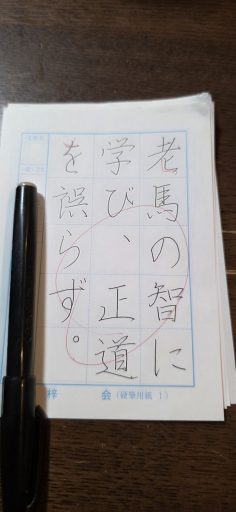 老馬の智に
学び、正道
を誤らず。
梓 会(硬筆用紙 1)